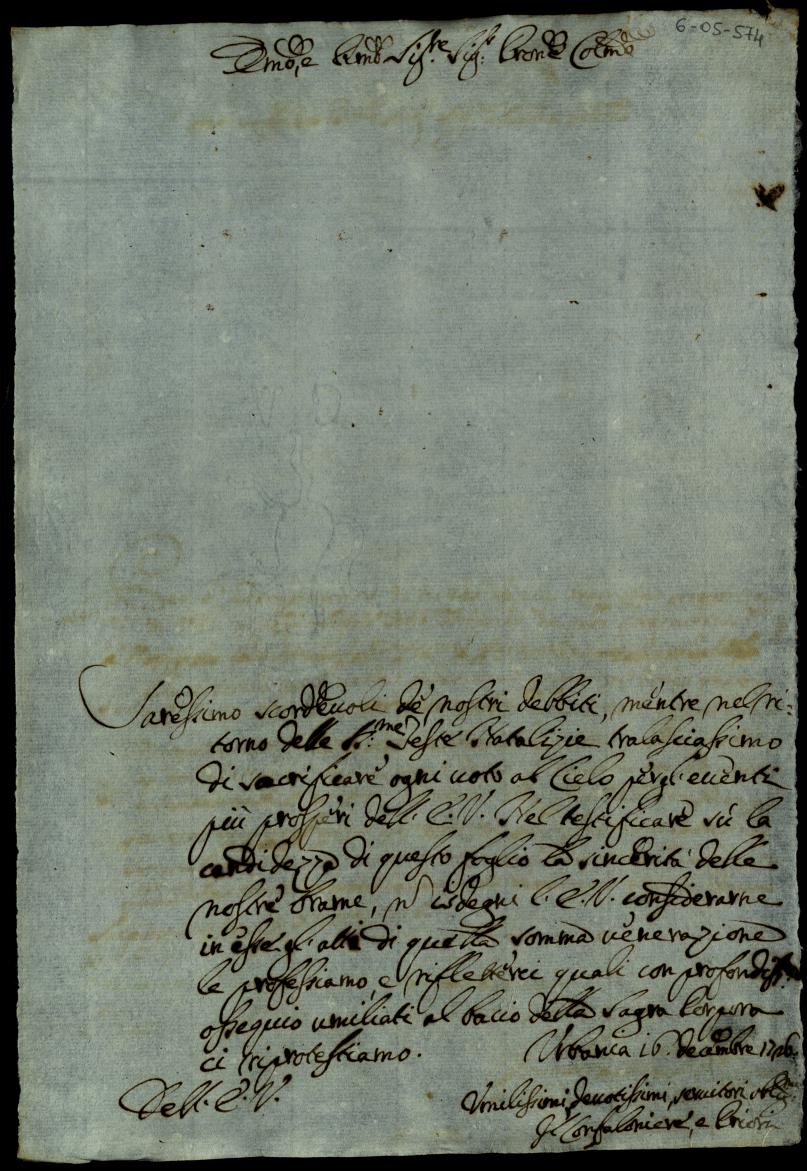 6-05-574
Emo, e Rmo Sig.re Sig.r Prone Colmo
Saressimo scordevoli de nostri debbiti, mentre nel ri-
torno delle S.me Feste Natalizie tralasciassimo
di sacrificare ogni voto al Cielo per gl'eventi
più prosperi dell'E.V. Nel testificare sù la
candidezza di questo foglio la sincerità delle
nostre brame, n isdegni l'E.V. considerarne
in esse gl'atti di quella somma venerazione
le professiamo, e rifletterci quali con profondiss.
ossequio umiliati al bacio della Sagra Porpora
ci riprotestiamo. Urbania 16. Decembre
Dell'E.V.
Umilissimi, devotissimi, servitori
Il Confaloniere, e Priori